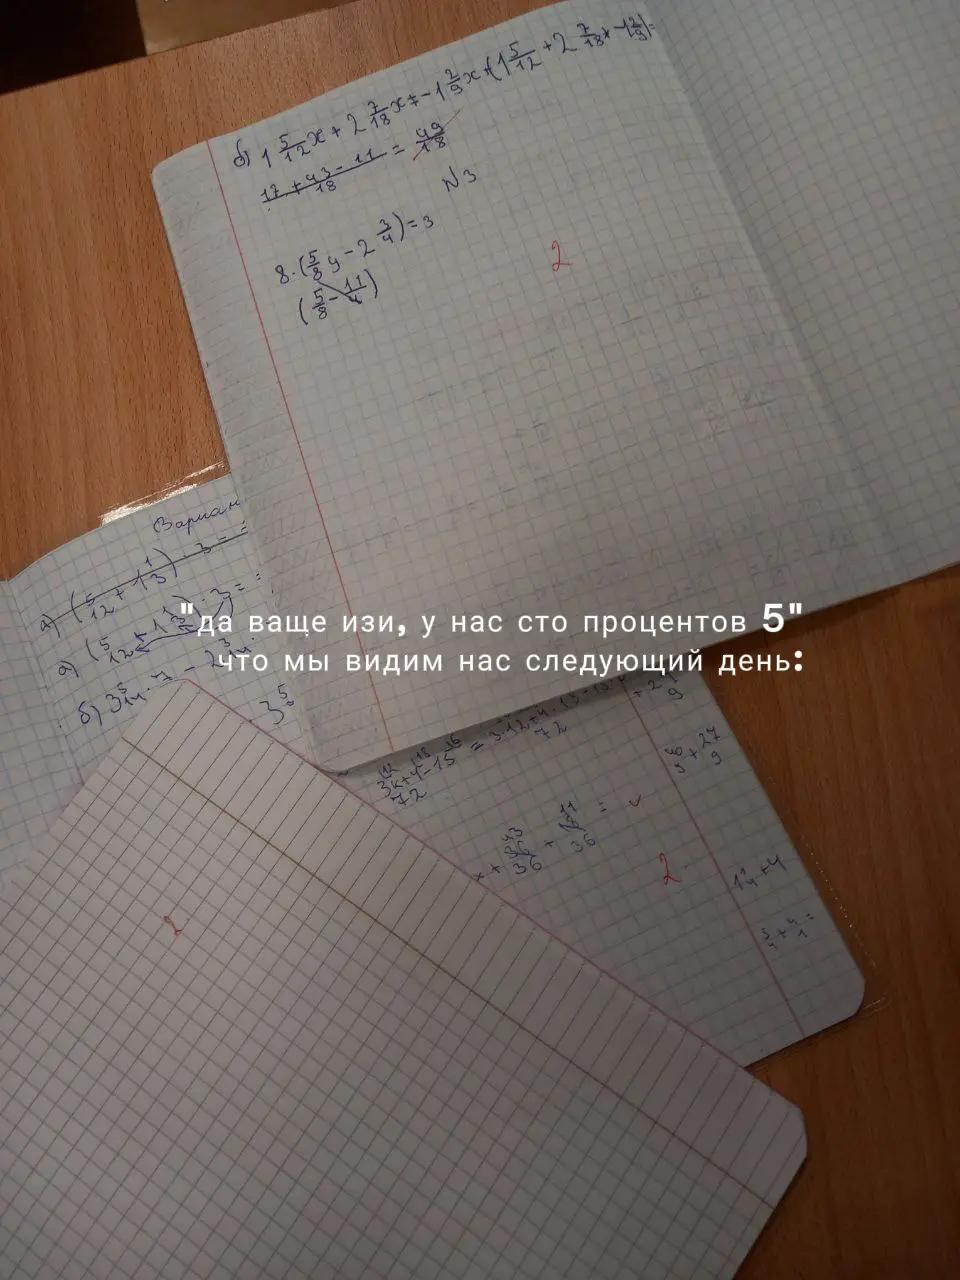 б) 1 5/12 x + 2 7/18 x + - 1 2/9 x + (1 5/12 + 2 7/18 x - 1 2/9) =
17 + 43 - 11 / 18 = 49/18
N3
8 · (5/8 y - 2 3/4) = 3
(5/8 - 11/4)
2
Вариан
а) (5/12 + 1 1/3) · 3 - =
а) (5/12 + 1 1/3) · 3 = =
"да ваще изи, у нас сто процентов 5"
что мы видим нас следующий день:
б) 3 5/14 · 7 - 2 3/14
3 5
72
72
+ 2 1/9
+ 27/9
x + 43/36 + 11/36 = ✓
2
1 1/4 + 4
5/4 + 4/1 =
2